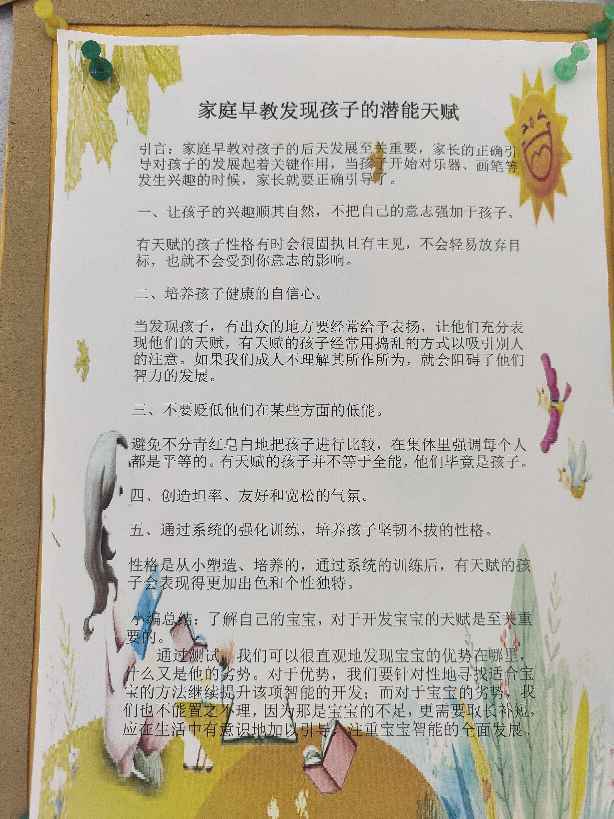 家庭早教发现孩子的潜能天赋
引言：家庭早教对孩子的后天发展至关重要，家长的正确引
导对孩子的发展起着关键作用，当孩子开始对乐器、画笔等
发生兴趣的时候，家长就要正确引导了。
一、让孩子的兴趣顺其自然，不把自己的意志强加于孩子。
有天赋的孩子性格有时会很固执且有主见，不会轻易放弃目
标，也就不会受到你意志的影响。
二、培养孩子健康的自信心。
当发现孩子，有出众的地方要经常给予表扬，让他们充分表
现他们的天赋，有天赋的孩子经常用捣乱的方式以吸引别人
的注意。如果我们成人不理解其所作所为，就会阻碍了他们
智力的发展。
三、不要贬低他们在某些方面的低能。
避免不分青红皂白地把孩子进行比较，在集体里强调每个人
都是平等的。有天赋的孩子并不等于全能，他们毕竟是孩子。
四、创造坦率、友好和宽松的气氛。
五、通过系统的强化训练，培养孩子坚韧不拔的性格。
性格是从小塑造、培养的，通过系统的训练后，有天赋的孩
子会表现得更加出色和个性独特。
小编总结：了解自己的宝宝，对于开发宝宝的天赋是至关重
要的。
通过测试，我们可以很直观地发现宝宝的优势在哪里，
什么又是他的劣势。对于优势，我们要针对性地寻找适合宝
宝的方法继续提升该项智能的开发；而对于宝宝的劣势，我
们也不能置之不理，因为那是宝宝的不足，更需要取长补短，
应在生活中有意识地加以引导，注重宝宝智能的全面发展。